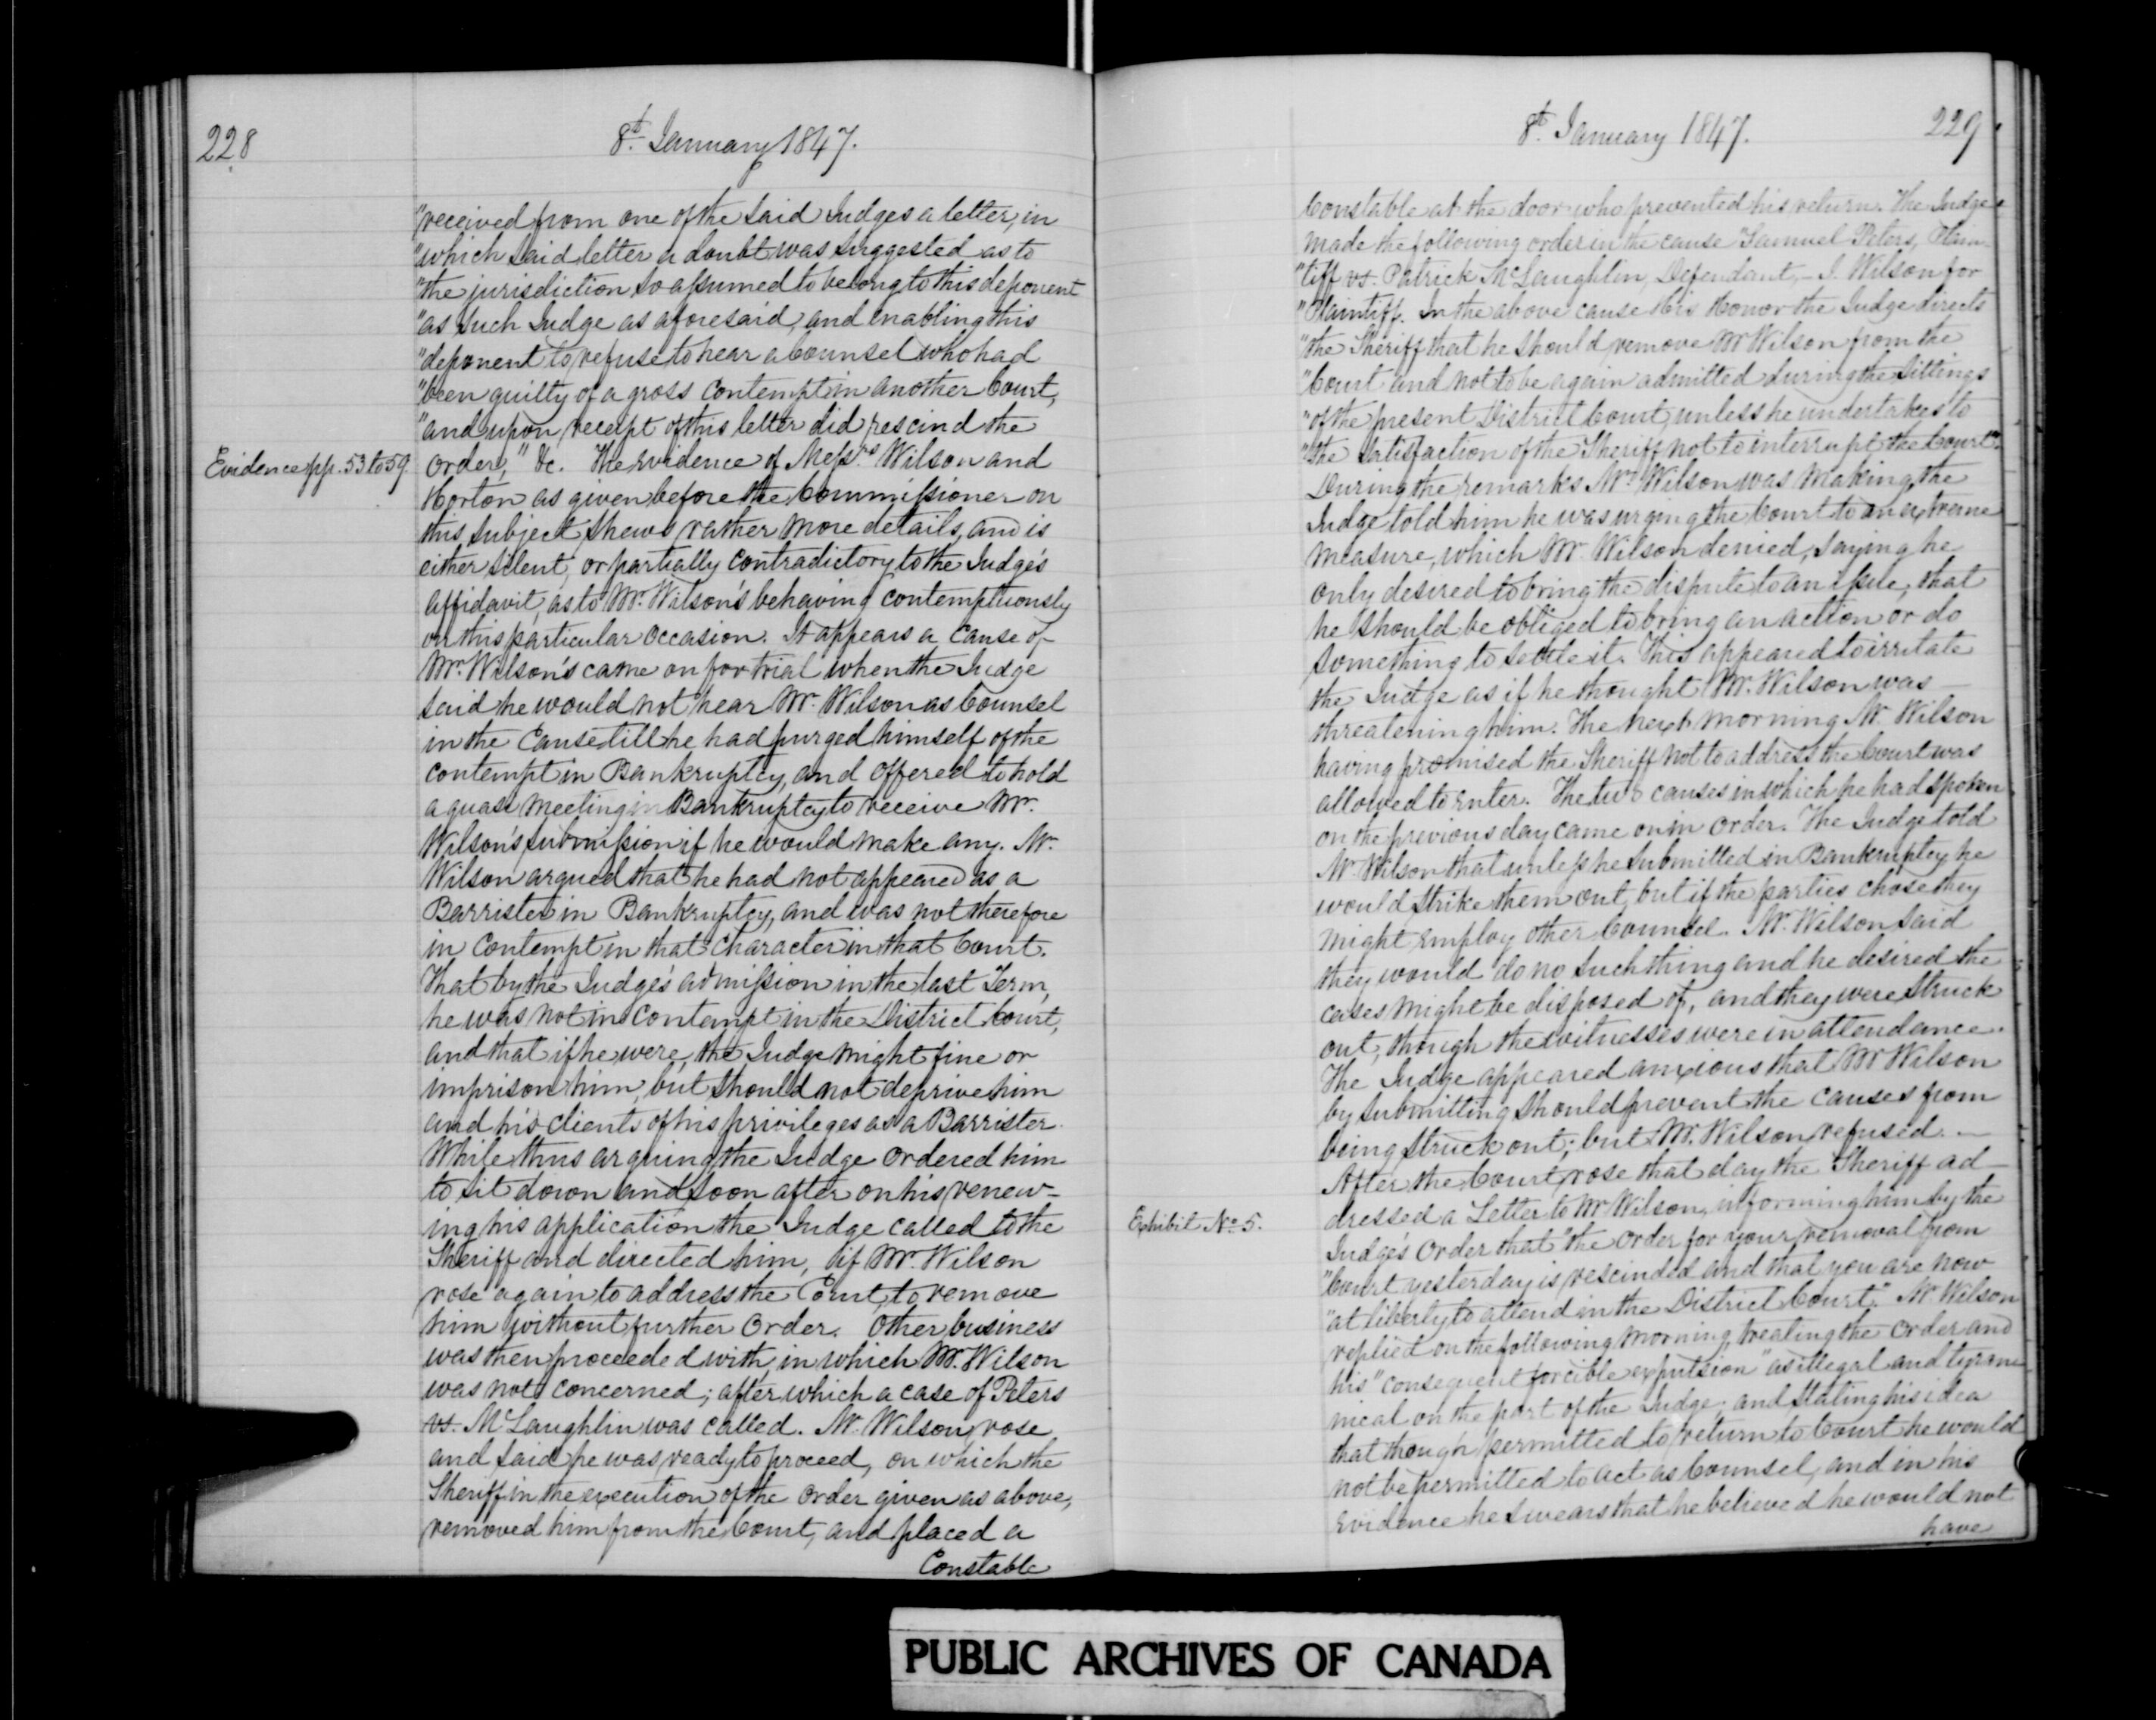 228
8th. January 1847.
"received from one of the said Judges a letter, in
"which said letter a doubt was suggested as to
"the jurisdiction so assumed to belong to this deponent
"as such Judge as aforesaid, and enabling this
"deponent to refuse to hear a Counsel who had
"been guilty of a gross contempt in another Court,
"and upon receipt of this letter did rescind the
Evidence pp. 53 to 59.
order," &c. The evidence of Messrs. Wilson and
Horton as given before the Commissioner on
this subject shews rather more details, and is
either silent, or partially contradictory to the Judge's
affidavit, as to Mr. Wilson's behaving contemptuously
on this particular occasion. It appears a cause of
Mr. Wilson's came on for trial when the Judge
said he would not hear Mr. Wilson as Counsel
in the Cause till he had purged himself of the
contempt in Bankruptcy, and offered to hold
a quasi meeting in Bankruptcy to receive Mr.
Wilson's submission if he would make any. Mr.
Wilson argued that he had not appeared as a
Barrister in Bankruptcy, and was not therefore
in contempt in that character in that Court.
That by the Judge's admission in the last Term,
he was not in contempt in the District Court,
and that if he were, the Judge might fine or
imprison him, but should not deprive him
and his clients of his privileges as a Barrister.
While thus arguing the Judge ordered him
to sit down and soon after on his renew-
ing his application the Judge called to the
Sheriff and directed him, if Mr. Wilson
rose again to address the Court to remove
him without further order. Other business
was then proceeded with, in which Mr. Wilson
was not concerned; after which a case of Peters
vs. McLaughlin was called. Mr. Wilson rose
and said he was ready to proceed, on which the
Sheriff in the execution of the order given as above,
removed him from the Court, and placed a
Constable
8th. January 1847.
229
Constable at the door who prevented his return. The Judge
made the following order in the cause "Samuel Peters, Plain-
"tiff vs. Patrick McLaughlin, Defendant,- J. Wilson for
"Plaintiff. In the above cause His Honor the Judge directs
"the Sheriff that he should remove Mr Wilson from the
"Court and not to be again admitted during the sittings
"of the present District Court, unless he undertakes to
"the satisfaction of the Sheriff not to interrupt the Court".
During the remarks Mr. Wilson was making, the
Judge told him he was urging the Court to an extreme
measure, which Mr. Wilson denied, saying he
only desired to bring the dispute to an issue, that
he should be obliged to bring an action or do
something to settle it. This appeared to irritate
the Judge as if he thought Mr. Wilson was
threatening him. The next morning Mr. Wilson
having promised the Sheriff not to address the Court was
allowed to enter. The two causes in which he had spoken
on the previous day came on in order. The Judge told
Mr. Wilson that unless he submitted in Bankruptcy he
would strike them out, but if the parties chose they
might employ other Counsel. Mr. Wilson said
they would do no such thing and he desired the
cases might be disposed of, and they were struck
out, though the witnesses were in attendance.
The Judge appeared anxious that Mr Wilson
by submitting should prevent the causes from
being struck out; but Mr. Wilson refused.—
After the Court rose that day the Sheriff ad-
Exhibit No. 5.
dressed a Letter to Mr Wilson, informing him by the
Judge's order that "the order for your removal from
"Court yesterday is rescinded and that you are now
"at liberty to attend in the District Court." Mr. Wilson
replied on the following morning, treating the order and
his "consequent forcible expulsion" as illegal and tyran-
nical on the part of the Judge; and stating his idea
that though permitted to return to Court he would
not be permitted to act as Counsel, and in his
evidence he swears that he believed he would not
have
PUBLIC ARCHIVES OF CANADA